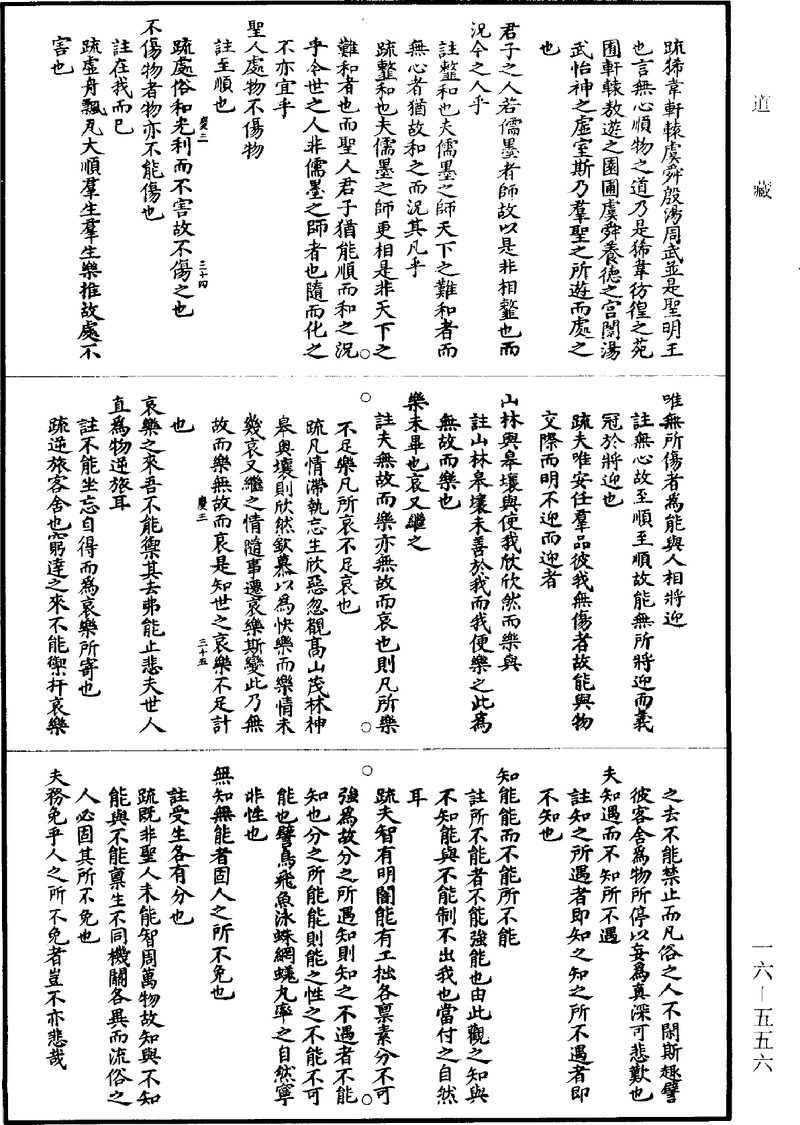 道藏
疏狶韋軒轅虞舜殷湯周武並是聖明王
也言無心順物之道乃是狶韋彷徨之苑
囿軒轅敖遊之園圃虞舜養德之宮闈湯
武怡神之虛室斯乃羣聖之所遊而處之
也
君子之人若儒墨者師故以是非相𩐎也而
況今之人乎
註𩐎和也夫儒墨之師天下之難和者而
無心者猶故和之而況其凡乎
疏𩐎和也夫儒墨之師更相是非天下之
難和者也而聖人君子猶能順而和之況
乎今世之人非儒墨之師者也隨而化之
不亦宜乎
聖人處物不傷物
註至順也
疏處俗和光利而不害故不傷之也
慶三
三十四
不傷物者物亦不能傷也
註在我而已
疏虛舟飄瓦大順羣生羣生樂推故處不
害也
唯無所傷者爲能與人相將迎
註無心故至順至順故能無所將迎而義
冠於將迎也
疏夫唯安任羣品彼我無傷者故能與物
交際而明不迎而迎者
山林與皋壤與使我欣欣然而樂與
註山林皋壤未善於我而我便樂之此爲
無故而樂也
樂未畢也哀又繼之
註夫無故而樂亦無故而哀也則凡所樂
不足樂凡所哀不足哀也
疏凡情滯執忘生欣惡忽覩高山茂林神
皋奧壤則欣然欽慕以爲快樂而樂情未
幾哀又繼之情隨事遷哀樂斯變此乃無
故而樂無故而哀是知世之哀樂不足計
也
慶三
三十五
哀樂之來吾不能禦其去弗能止悲夫世人
直爲物逆旅耳
註不能坐忘自得而爲哀樂所寄也
疏逆旅客舍也窮達之來不能禦扞哀樂
之去不能禁止而凡俗之人不閑斯趣譬
彼客舍爲物所停以妄爲真深可悲歎也
夫知遇而不知所不遇
註知之所遇者即知之知之所不遇者即
不知也
知能能而不能所不能
註所不能者不能強能也由此觀之知與
不知能與不能制不出我也當付之自然
耳
疏夫智有明闇能有工拙各稟素分不可
強爲故分之所遇知則知之不遇者不能
知也分之所能能則能之性之不能不可
能也譬鳥飛魚泳蛛網蜣丸率之自然寧
非性也
無知無能者固人之所不免也
註受生各有分也
疏既非聖人未能智周萬物故知與不知
能與不能稟生不同機關各異而流俗之
人必固其所不免也
夫務免乎人之所不免者豈不亦悲哉
一六—五五六